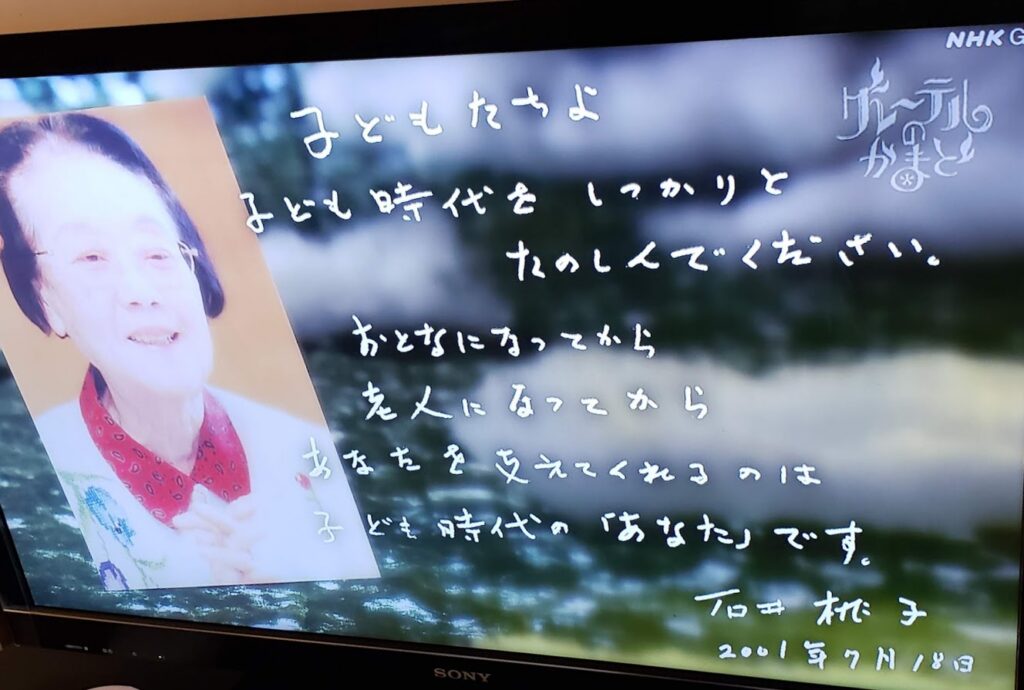 NHK G
グレーテルのかまど
子どもたちよ
子ども時代を しっかりと
たのしんでください。
おとなになってから
老人になってから
あなたを支えてくれるのは
子ども時代の「あなた」です。
石井桃子
2001年7月18日
SONY